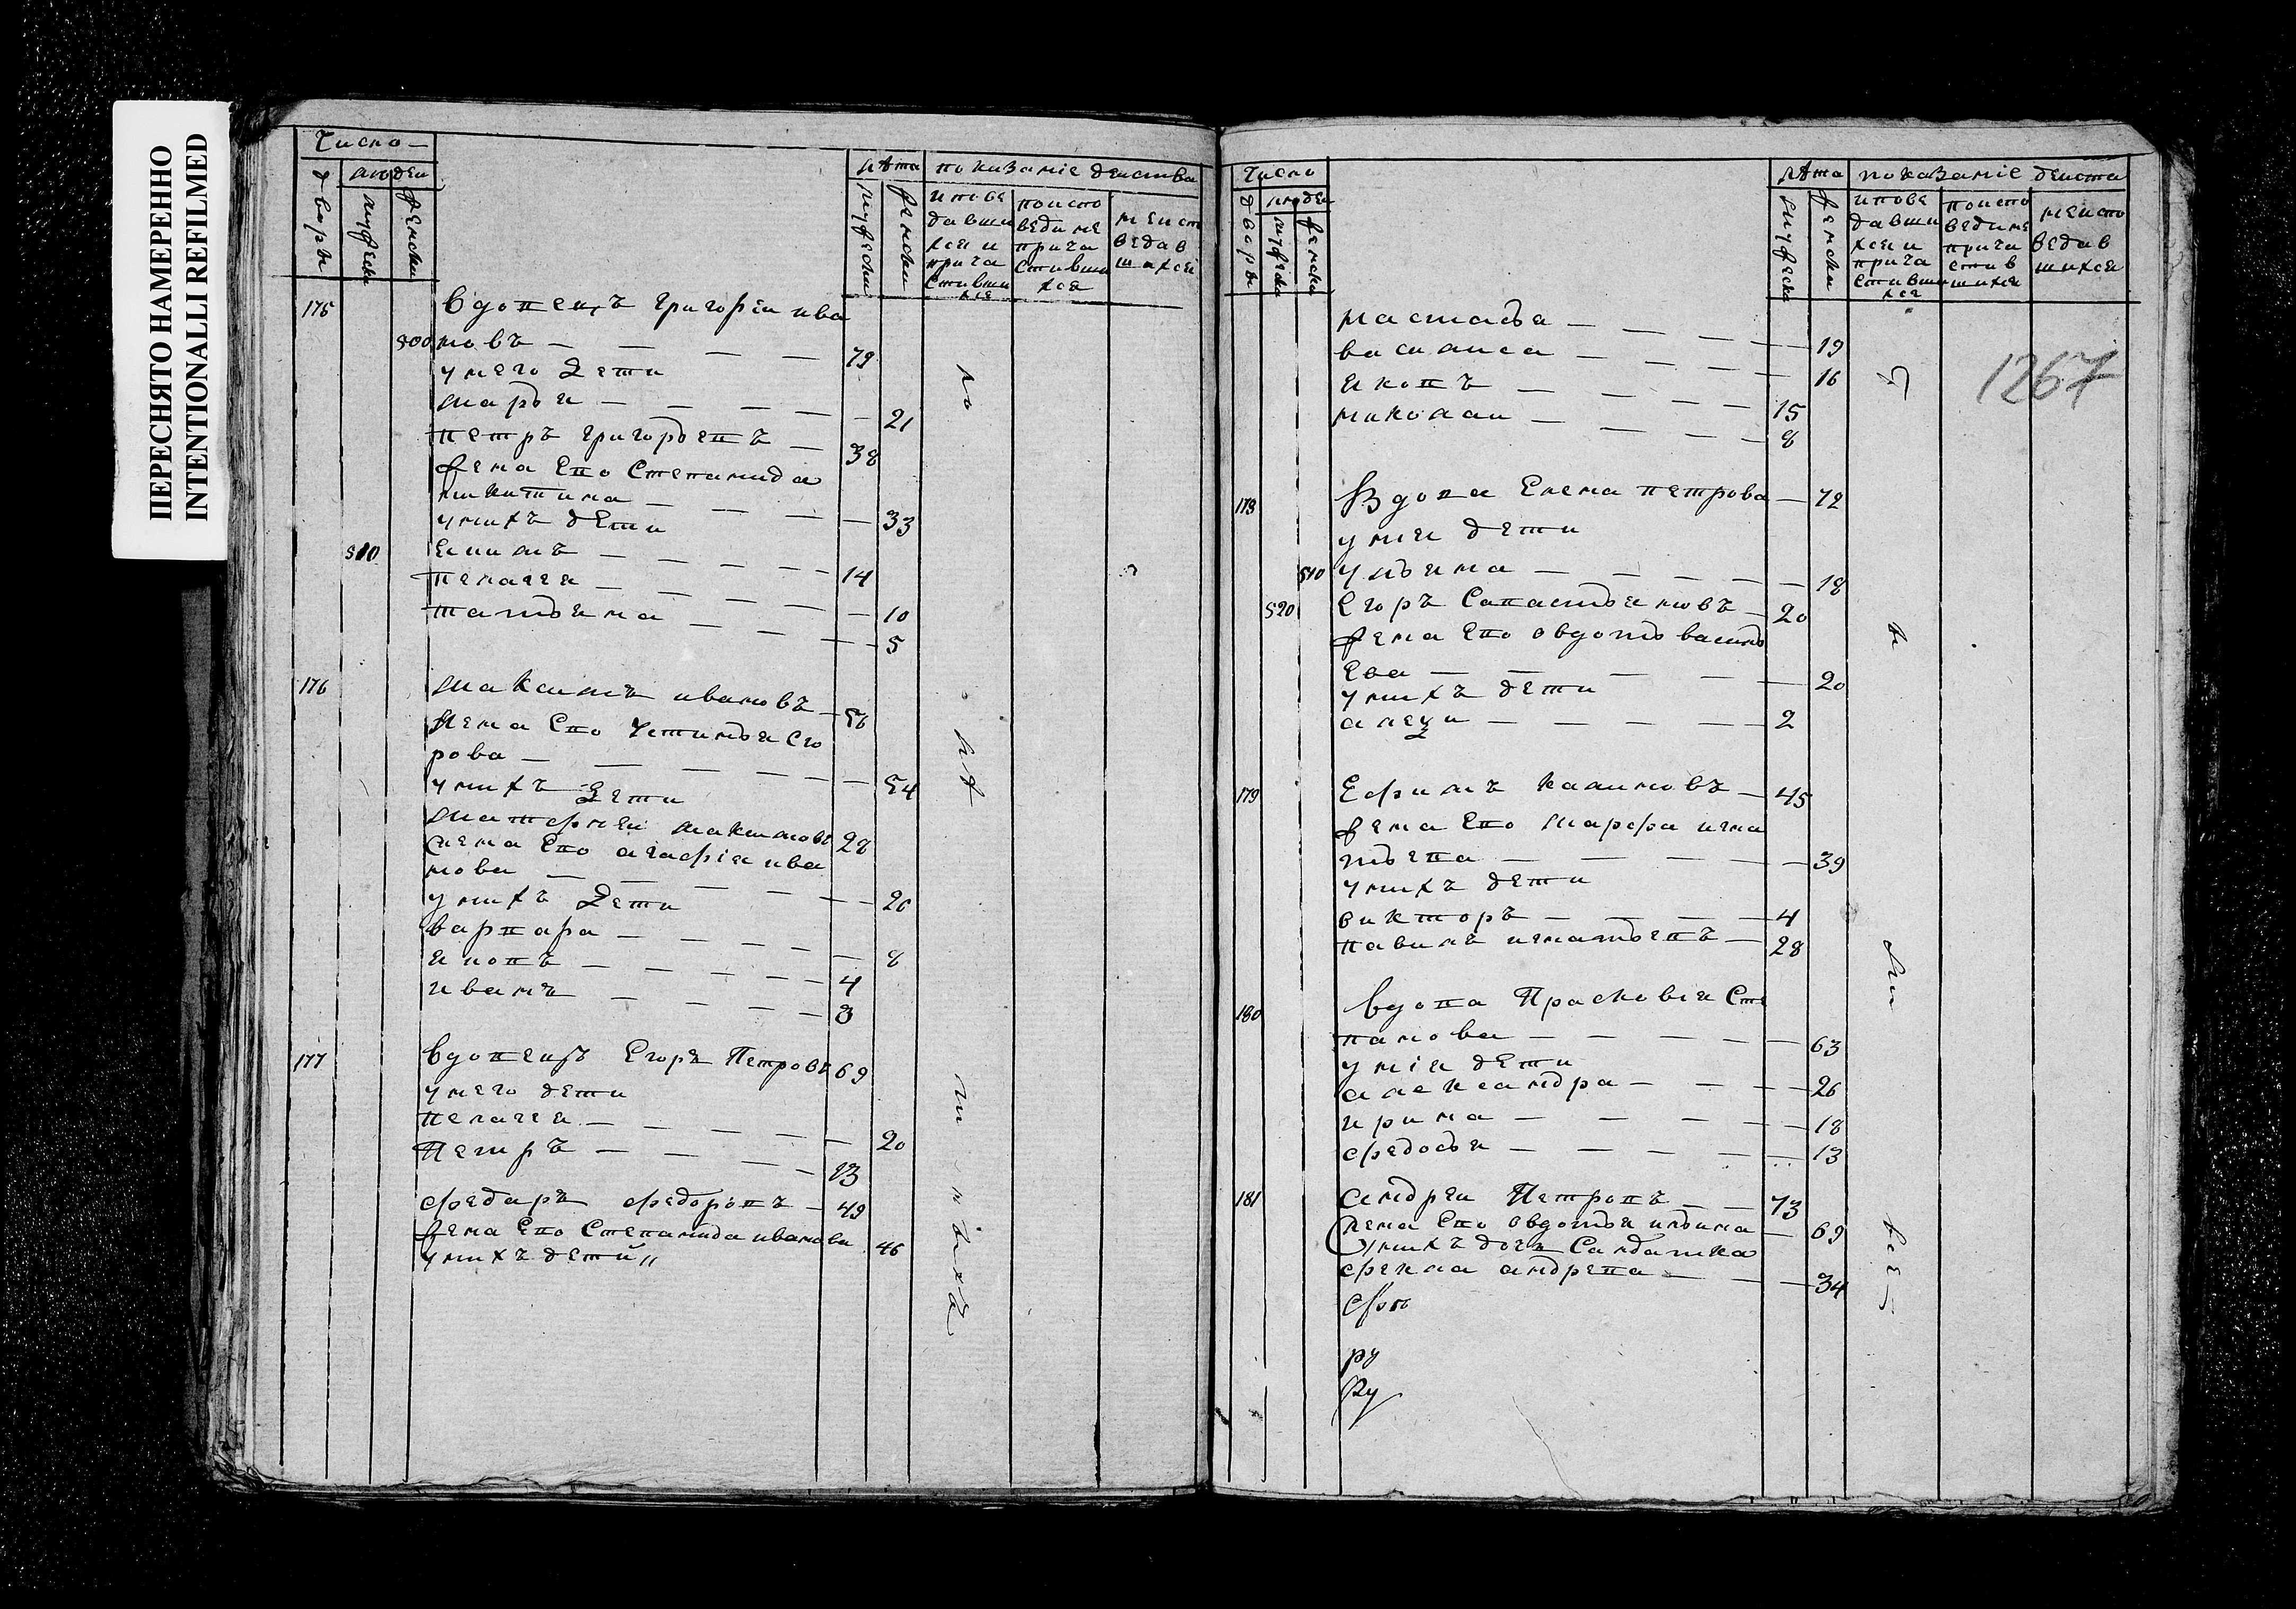 ПЕРЕСНЯТО НАМЕРЕННО
INTENTIONALLI REFILMED
Число
людеи
дворы
мужески
женски
лѣта
показаніе деиства
мужески
женски
испове
давши
хся и
прича
стивши
хся
поиспо
веди не
прича
стивши
хся
неисп
ведав
шихся
175
вдовецъ григореи ива
500 новъ — — — — 79
у него дети
марья — — — — 21
петръ григорьевъ — 38
жена Ево Степанида
никитина — — — 33
у нихъ дети
510
екимъ — — — — 14
пелагея — — — — 10
татьяна — — — 5
176
максимъ ивановъ — 56
жена Ево Устинья Его
рова — — — — 54
у нихъ дети
матфеи максимовъ 28
жена Ево агафія ива
нова — — — — 20
у нихъ дети
варвара — — — — 8
яковъ — — — — 4
иванъ — — — 3
177
вдовецъ Егоръ Петровъ 69
у него дети
пелагея — — — — 20
Петръ — — — — 13
федаръ федоровъ — 49
жена Ево Степанида иванова 46
у нихъ дети
Число
людеи
дворы
мужески
женски
лѣта
показаніе деиства
мужески
женски
испове
давши
хся и
прича
стивши
хся
поиспо
веди не
прича
стив
шихся
неиспо
ведав
шихся
1267
настасья — — — 19
василиса — — — 16
яковъ — — — — 15
николаи — — — — 8
178
Вдова Елена петрова — 72
у нея дети
510 ульяна — — — — 18
520 Егоръ Савастьяновъ — 20
жена Ево овдотья василь
Ева — — — — 20
у нихъ дети
— — — — 2
179
Ефимъ калиновъ — 45
жена Ево марфа игна
тьева — — — — 39
у нихъ дети
викторъ — — — — 4
павилъ игнатьевъ — 28
180
вдова Прасковія Сте
панова — — — — 63
у нія дети
александра — — — 26
ирина — — — — 18
федосья — — — — 13
181
андреи Петровъ — — 73
жена Ево овдотья ильина — 69
у нихъ дочь Салдатка
фекла андрева — — — 34
ру
Ру